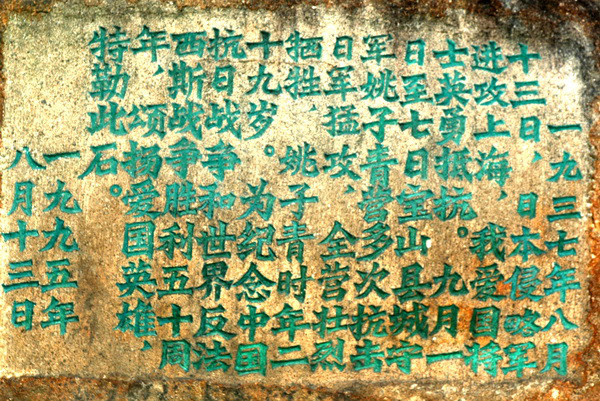 一九三七年八月
十三日，日本侵略军
进攻上海，我爱国将
士英勇抵抗。九月一
日至七日宝山县城守
军姚子青营多次抗击
日军猛攻，全营壮烈
牺牲，姚子青时年二
十九岁。为纪念中国
抗日战争和世界反法
西斯战争胜利五十周
年，颂扬爱国英雄，
特勒此石。
一九九五年
八月十三日